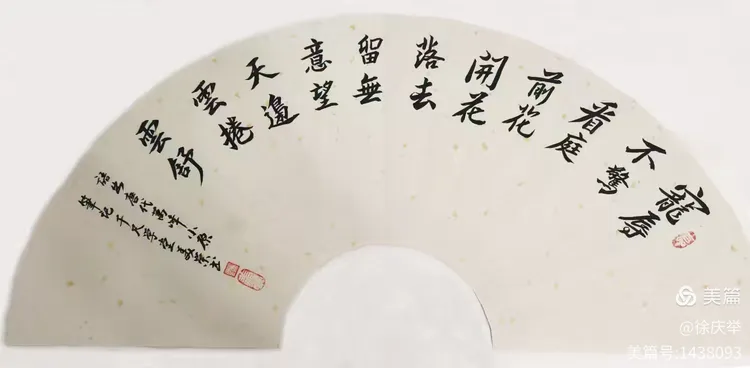 寵辱
不驚
看庭
前花
開花
落去
留無
意望
天邊
雲捲
雲舒
語出唐代
筆記
美篇
@徐庆举
美篇号:1438093